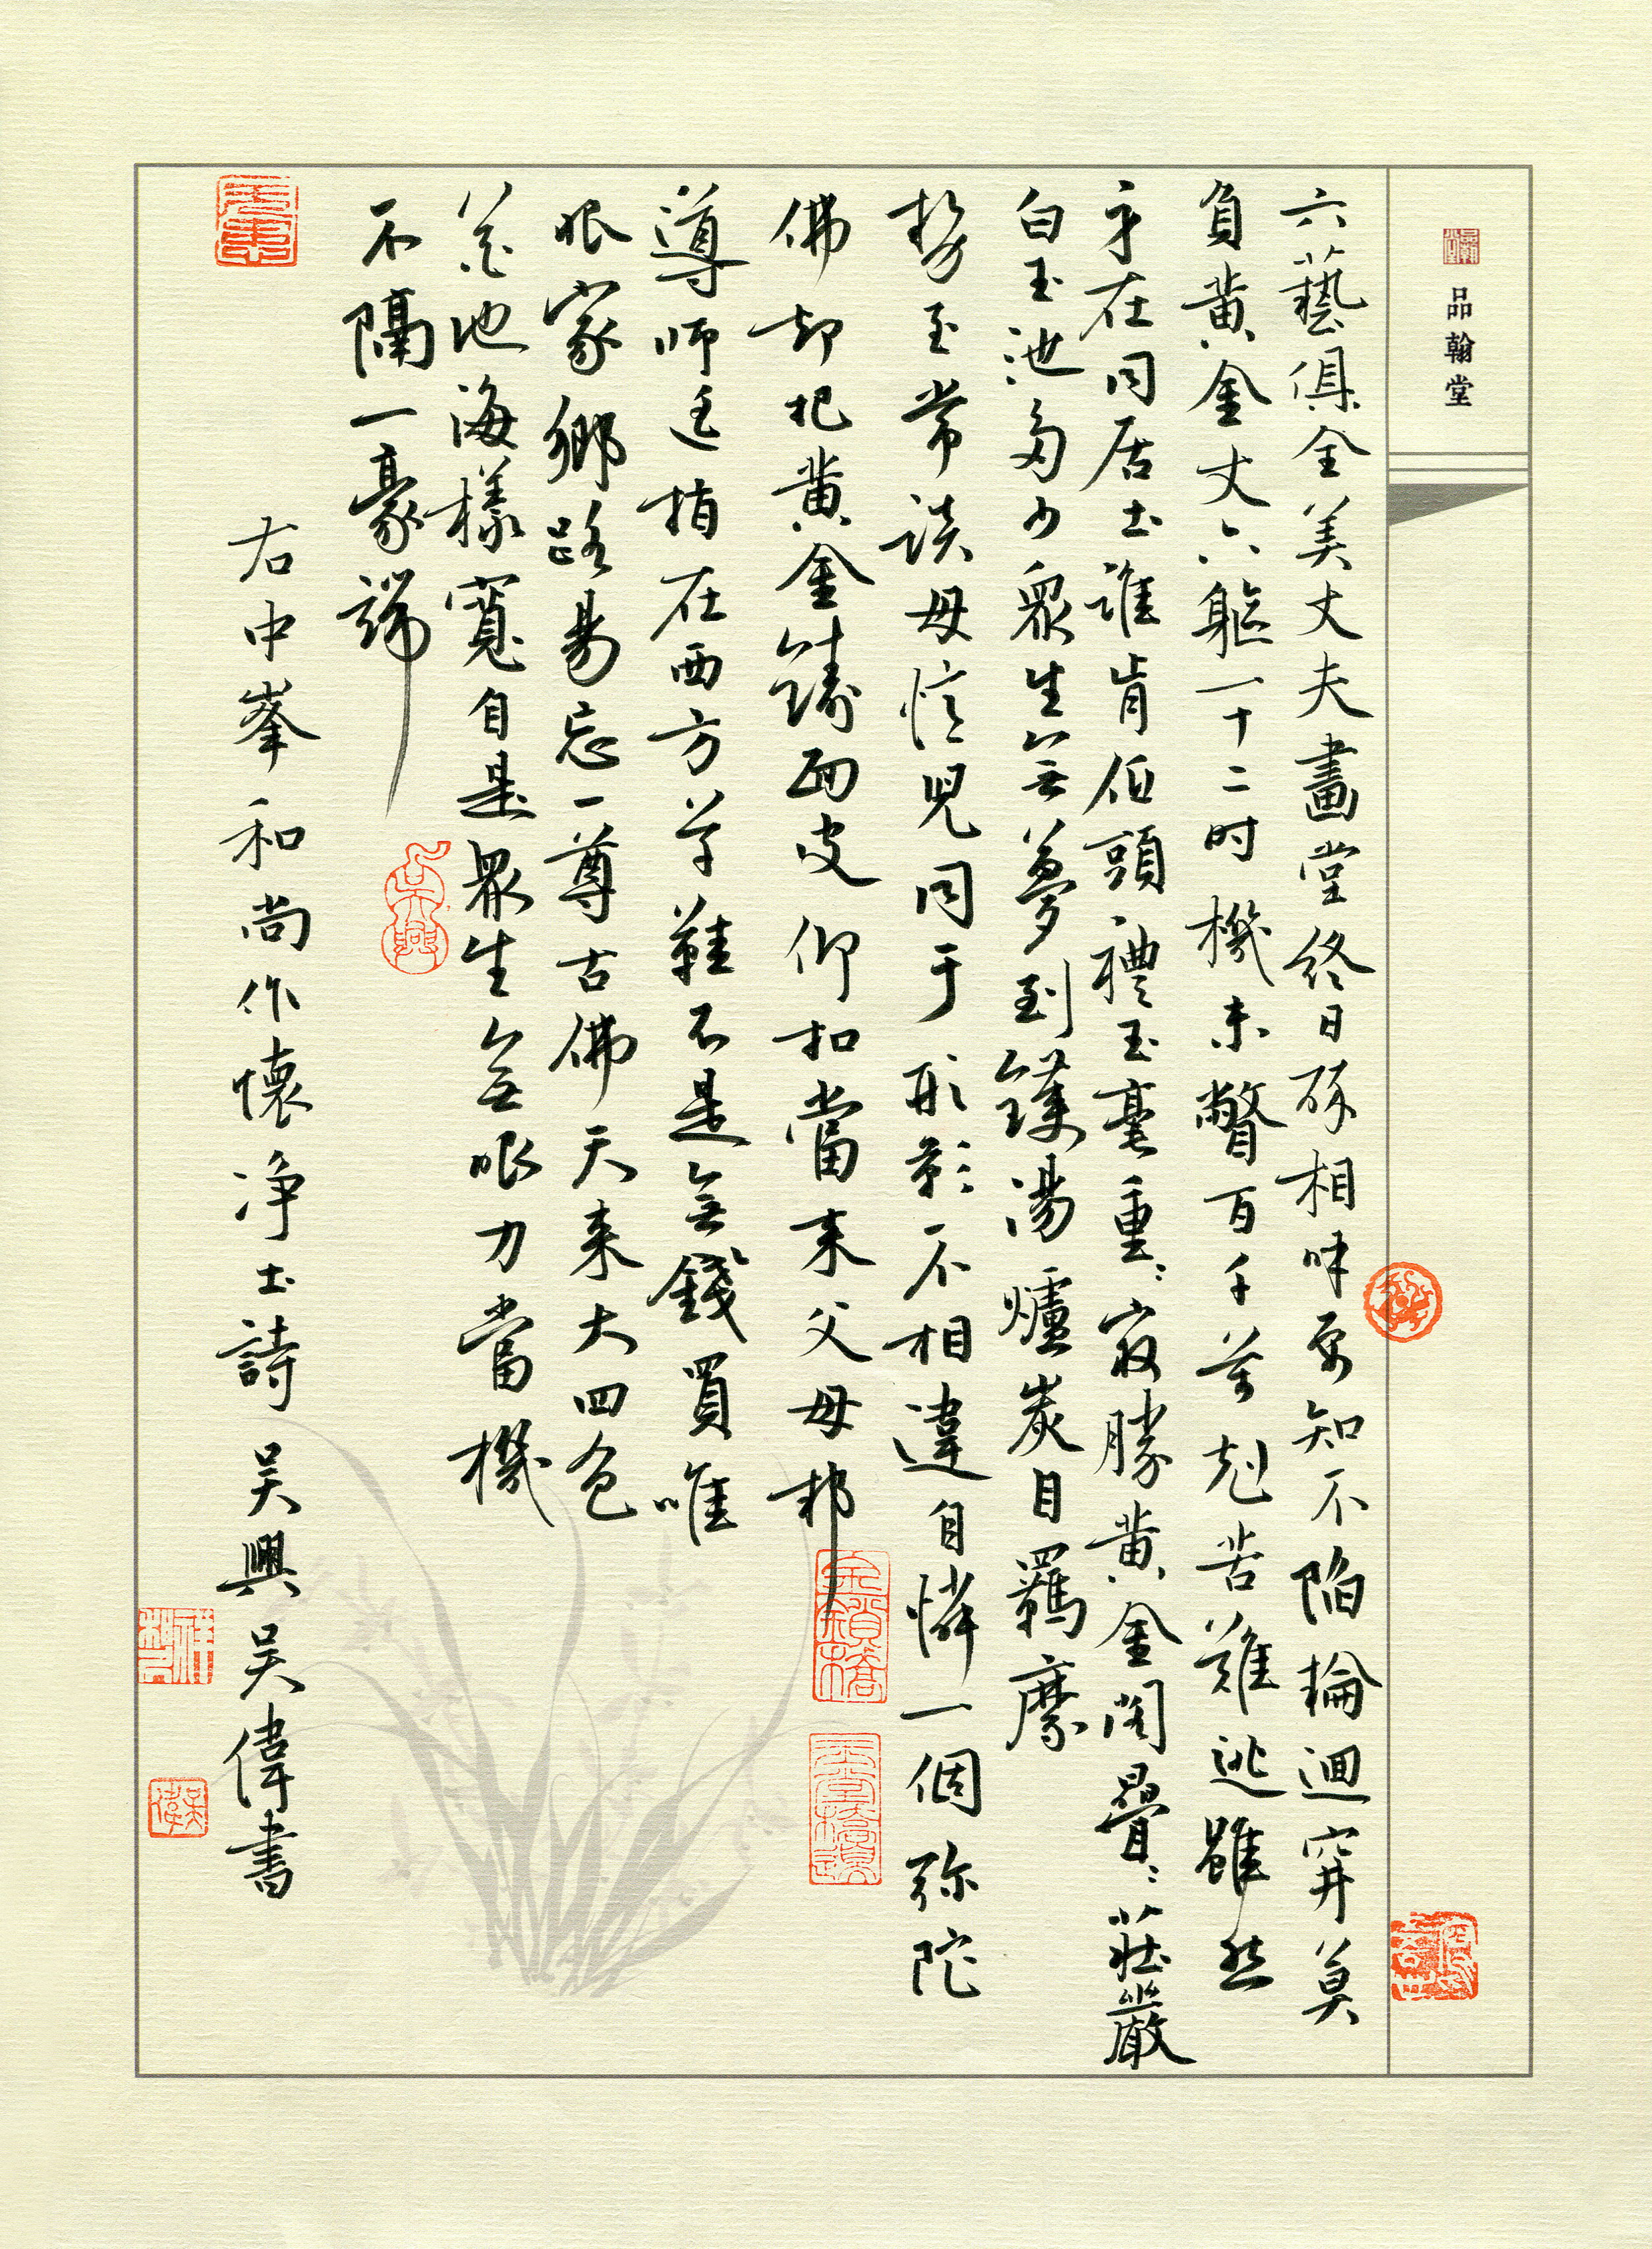 品翰堂
六藝俱全美丈夫畫堂終日酥相呼要知不陷輪迴穽莫
負黃金丈六軀一十二时機未瞥百千萬劫苦難逃雖然
身在同居土誰肯低頭禮玉毫重重寂勝黃金閣疊疊莊嚴
白玉池多少眾生無夢到鑊湯爐炭自羈縻
勢至常談母憶兒同于形影不相違自憐一個弥陀
佛却把黃金鑄面皮仰扣當来父母邦
導師廷指在西方草鞋不是無錢買唯
恨家鄉路易忘一尊古佛天来大四色
花池海樣寬自是眾生無眼力當機
不隔一豪端
右中峯和尚作懷净土詩 吴興吴偉書
吴興